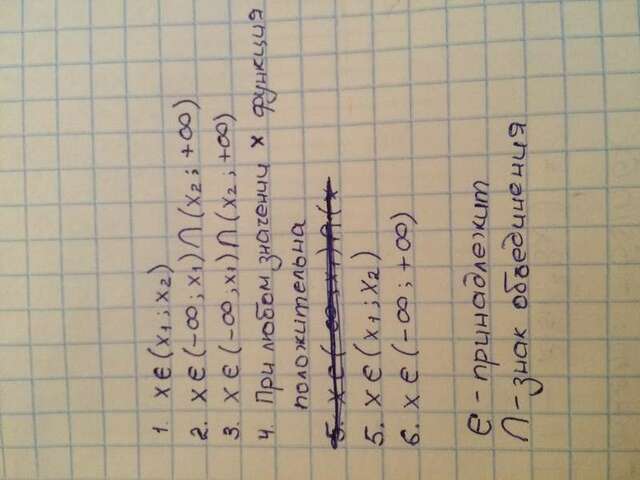 1. x ∈ (x₁ ; x₂)
2. x ∈ (-∞ ; x₁) ∩ (x₂ ; +∞)
3. x ∈ (-∞ ; x₁) ∩ (x₂ ; +∞)
4. При любом значении x функция
положительна
5. x ∈ (-∞ ; x₁) ∩ (x
5. x ∈ (x₁ ; x₂)
6. x ∈ (-∞ ; +∞)
∈ - принадлежит
∩ - знак объединения